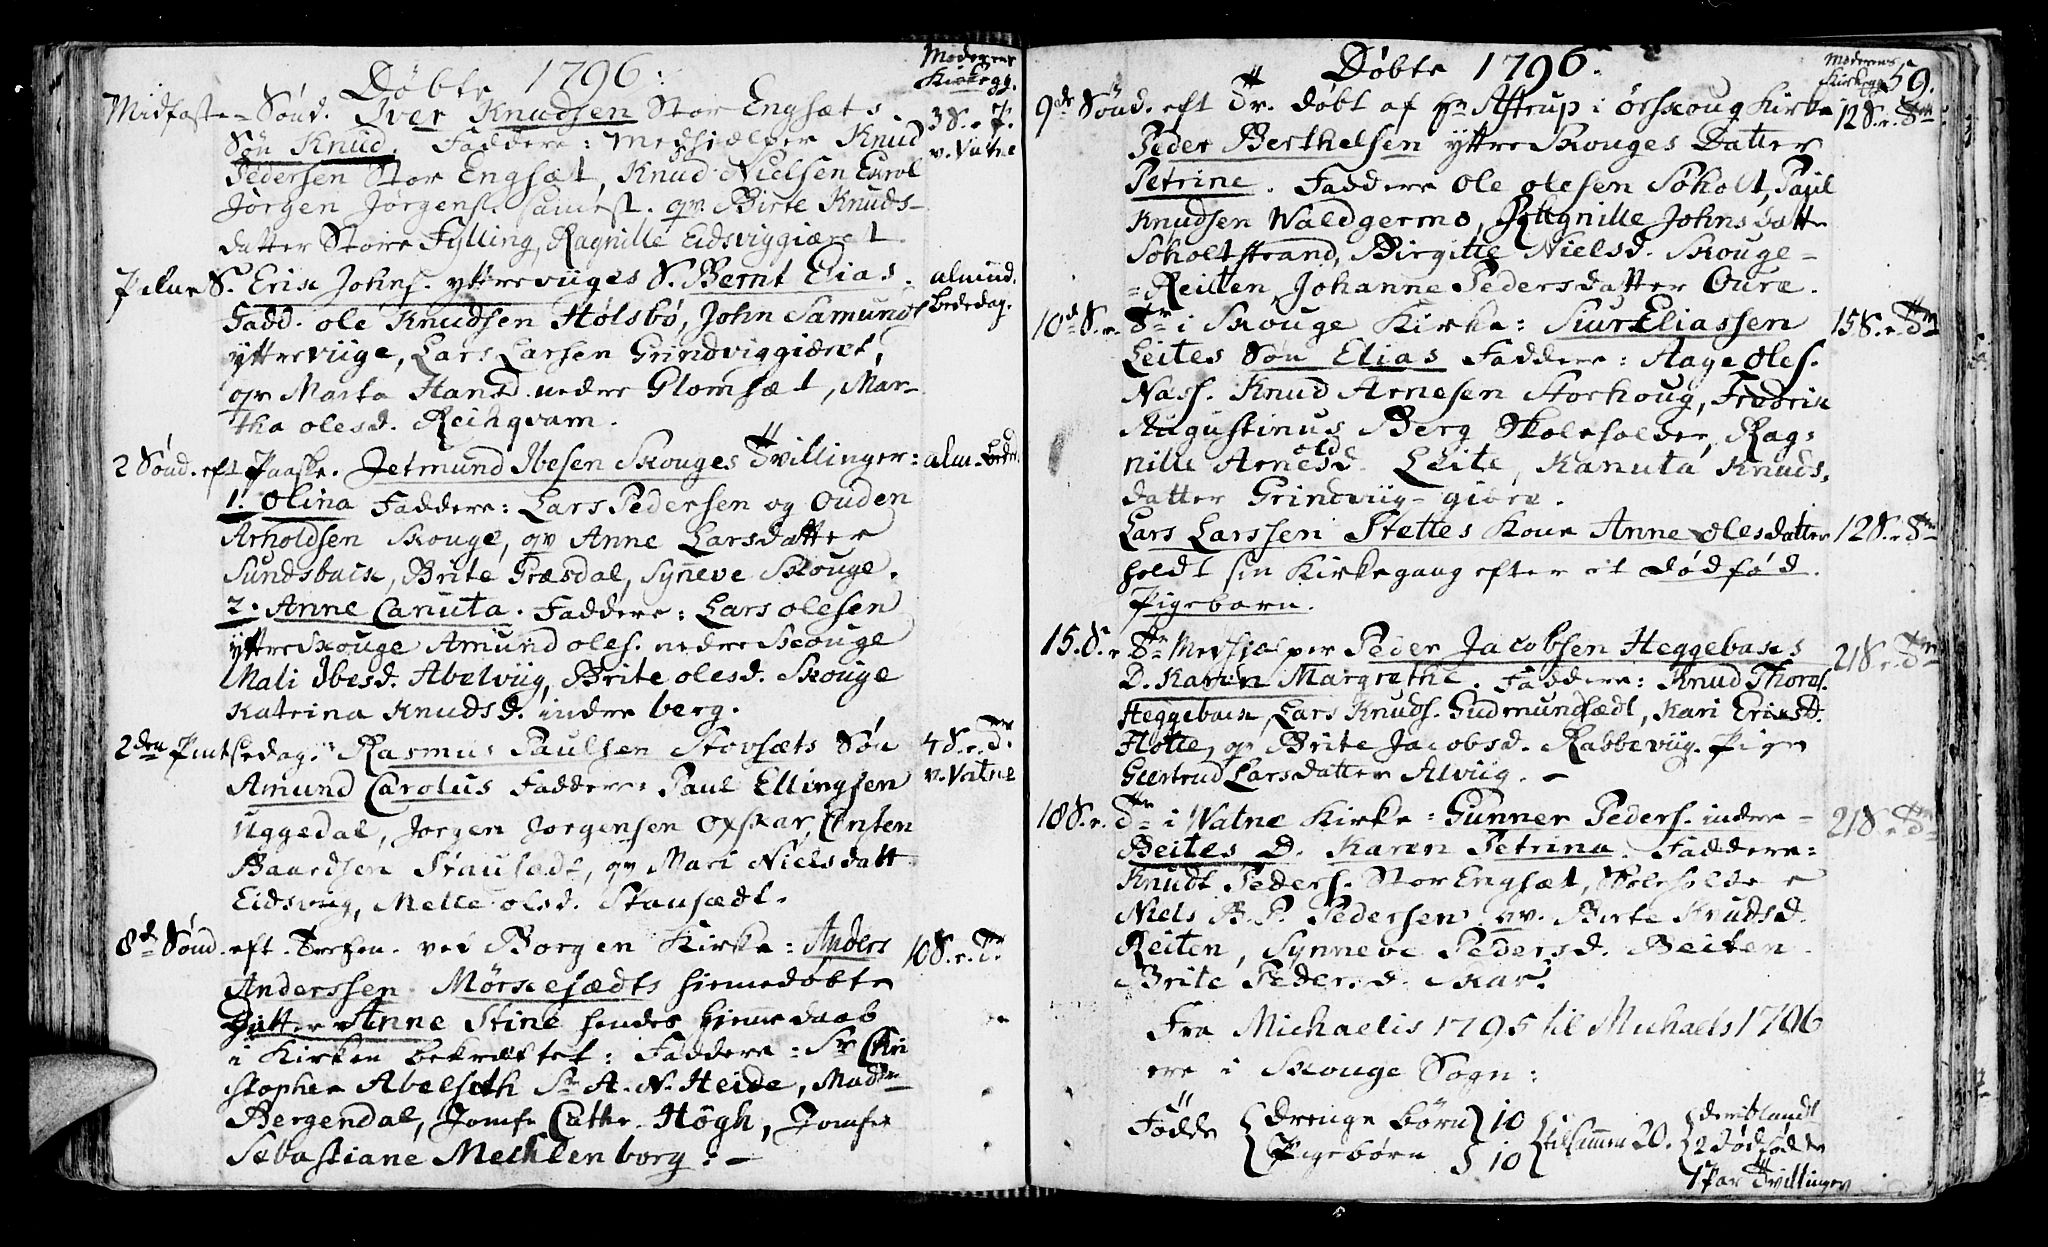 Døbte 1796:
Moderens
Kirkeg.
Midfaste-Sønd. Iver Knudsen Stor Engsæts
3 S. e. P.
v. Vatne
Søn Knud. Faddere: Medhielper Knud
Pedersen Stor Engsæt, Knud Nielsen
Jørgen Jørgens. samest. qv Birte Knuds-
datter Store Fylling, Ragnille Eidsviggiæret
Palme S. Erik Johns. yttre viiges S. Bernt Elias.
almind.
Bededag.
Fadd. ole Knudsen Hølsbø, John Samunds
yttre viige, Lars Larsen Grindviggiæret,
qv Marta Hansd nedre Glomsæt, Mar-
tha olesd. Reichqvam.
2 Sønd. eft Paaske. Jetmund Ibesen Skouges Tvillinger:
alm. Beded.
1. Olina Faddere: Lars Pedersen og Ouden
Arnoldsen Skouge, qv Anne Larsdatter
Sundsbach, Brite Græsdal, Synneve Skouge.
2. Anne Canuta. Faddere: Lars olesen
yttre Skouge Amund oles. nedre Skouge
Mali Ibesd. Abelviig, Brite olesd. Skouge
Katrina Knudsd. indre berg.
2den Pintsedag. Rasmus Paulsen Stovsæts Søn
4 S. e. Tr.
v. Vatne
Amund Carolus Faddere: Paul Ellingsen
Uggedal, Jorgen Jorgensen Oxskar,
Baardsen Stausædt, qv Mari Nielsdatt
Eidsviig, Mette olsd. Stausædt.
8de Sønd. eft. Trefen. ved Borgen Kirke: Anders
10 S. e. Tr.
Anderssen Mørkesædts hiemmedøbte
Datter Anne Stine hendes hiemmedaab
i Kirken bekræftet: Faddere: Sr Chri
stopher Abelseth Sr A. N. Heide, Madme
Bergendal, Jomfr Cathr. Høgh, Jomfru
Sebastiane Mechlenborg. -
Døbte 1796.
Moderens
Kirkeg.
59.
9de Sønd. eft Tr. døbt af Hr Astrup i Ørskoug Kirke
12 S. e. Trn.
Peder Berthelsen yttre Skouges Datter
Petrine. Faddere Ole Olesen Søholt, Paul
Knudsen Waldgermo, Ragnille Johnsdatter
Søholtstrand, Birgitte Nielsd. Skouge-
-Reiten Johanne Pedersdatter Oure.
10de S. e. Tr i Skouge Kirke: Siur Eliassen
15 S. e. Trn
Leites Søn Elias Faddere: Aage Oles.
Næss. Knud Arnesen Storhoug, Fredrik
Augustinus Berg Skoleholder, Rag-
nille Arnoldsd. Leite, Kanuta Knuds.
datter Grindviig-giære.
Lars Larssen Stettes Kone Anne olesdatter
12 S. e. Trn
holdt sin Kirkegang efter et dødfød
Pigebarn.
15. S. e. Tr Medhielper Peder Jacobsen Heggebachs
21 S. e. Trn
D. Karen Margrethe. Faddere: Knud Thoras.
Heggebach, Lars Knuds. Gudmundsædt, Kari Eriksd.
Flotte, qv Brite Jacobsd. Rabbeviig. Pige
Geertrud Larsdatter Alviig. -
18 S. e. Tr i Watne Kirke: Gunner Peders. indre-
21 S. e. Trn
Beites D. Karen Petrina. Faddere:
Knudt Peders. Stor Engsæt, Skoleholder
Niels B. P. Pedersen. qv. Birte Knudsd.
Reiten, Synneve Pedersd. Beiten.
Brite Pedersd. Skar.
Fra Michaelis 1795 til Michaelis 1796
ere i Skouge Sogn:
Fødde { drenge børn } 10 { tilsammen 20. { deriblandt
Pigebørn } 10 2 dødfødde
1 Par Tvillinger